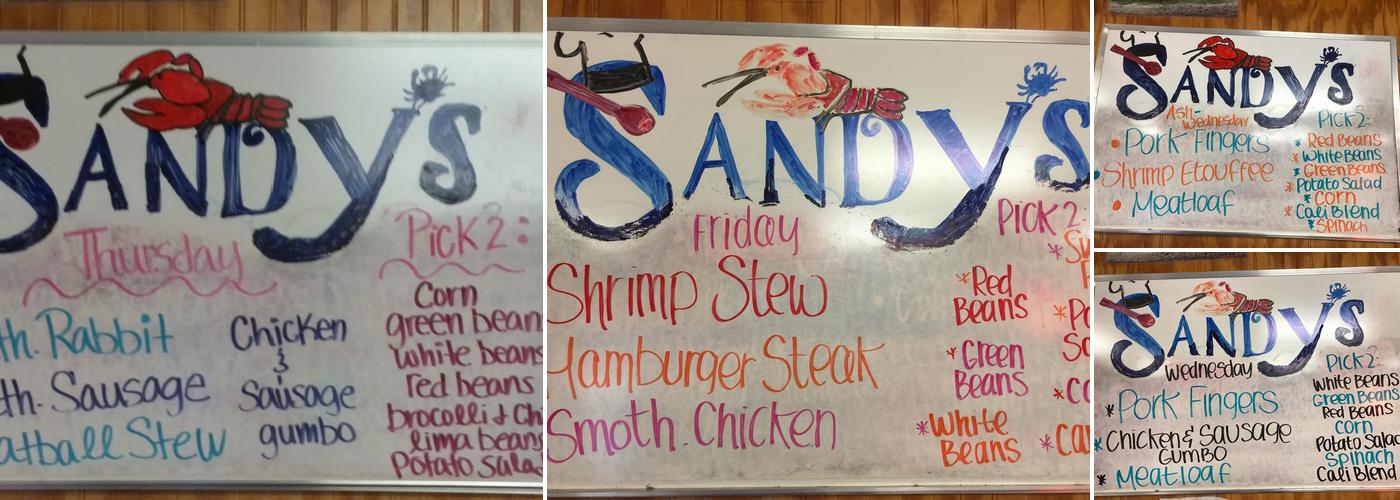 SANDY'S
Thursday
Pick 2:
th. Rabbit
th. Sausage
atball Stew
Chicken
&
Sausage
gumbo
Corn
green bean
white beans
red beans
brocolli & Ch
lima beans
Potato Sala
SANDY'S
Friday
Pick 2:
Shrimp Stew
Hamburger Steak
Smoth. Chicken
*Red
Beans
*Green
Beans
*White
Beans
SANDY'S
Ash-
Wednesday
Pick 2:
• Pork Fingers
Shrimp Etouffee
• Meatloaf
* Red Beans
* White Beans
* Green Beans
* Potato Salad
* Corn
* Cali Blend
* Spinach
SANDY'S
Wednesday
Pick 2:
* Pork Fingers
* Chicken & Sausage
Gumbo
* Meatloaf
White Beans
Green Beans
Red Beans
Corn
Potato Salad
Spinach
Cali Blend